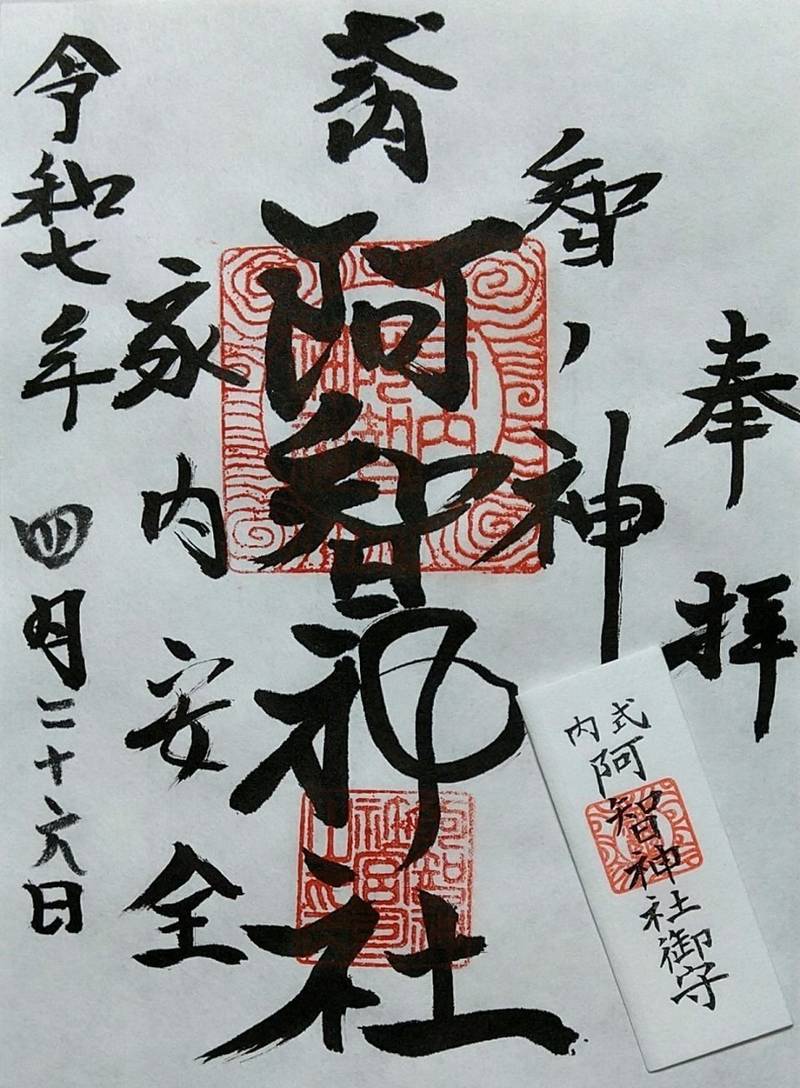 奉拝
智ノ神
式内
阿智神社
家内安全
令和七年四月二十六日
式内
阿智神社御守